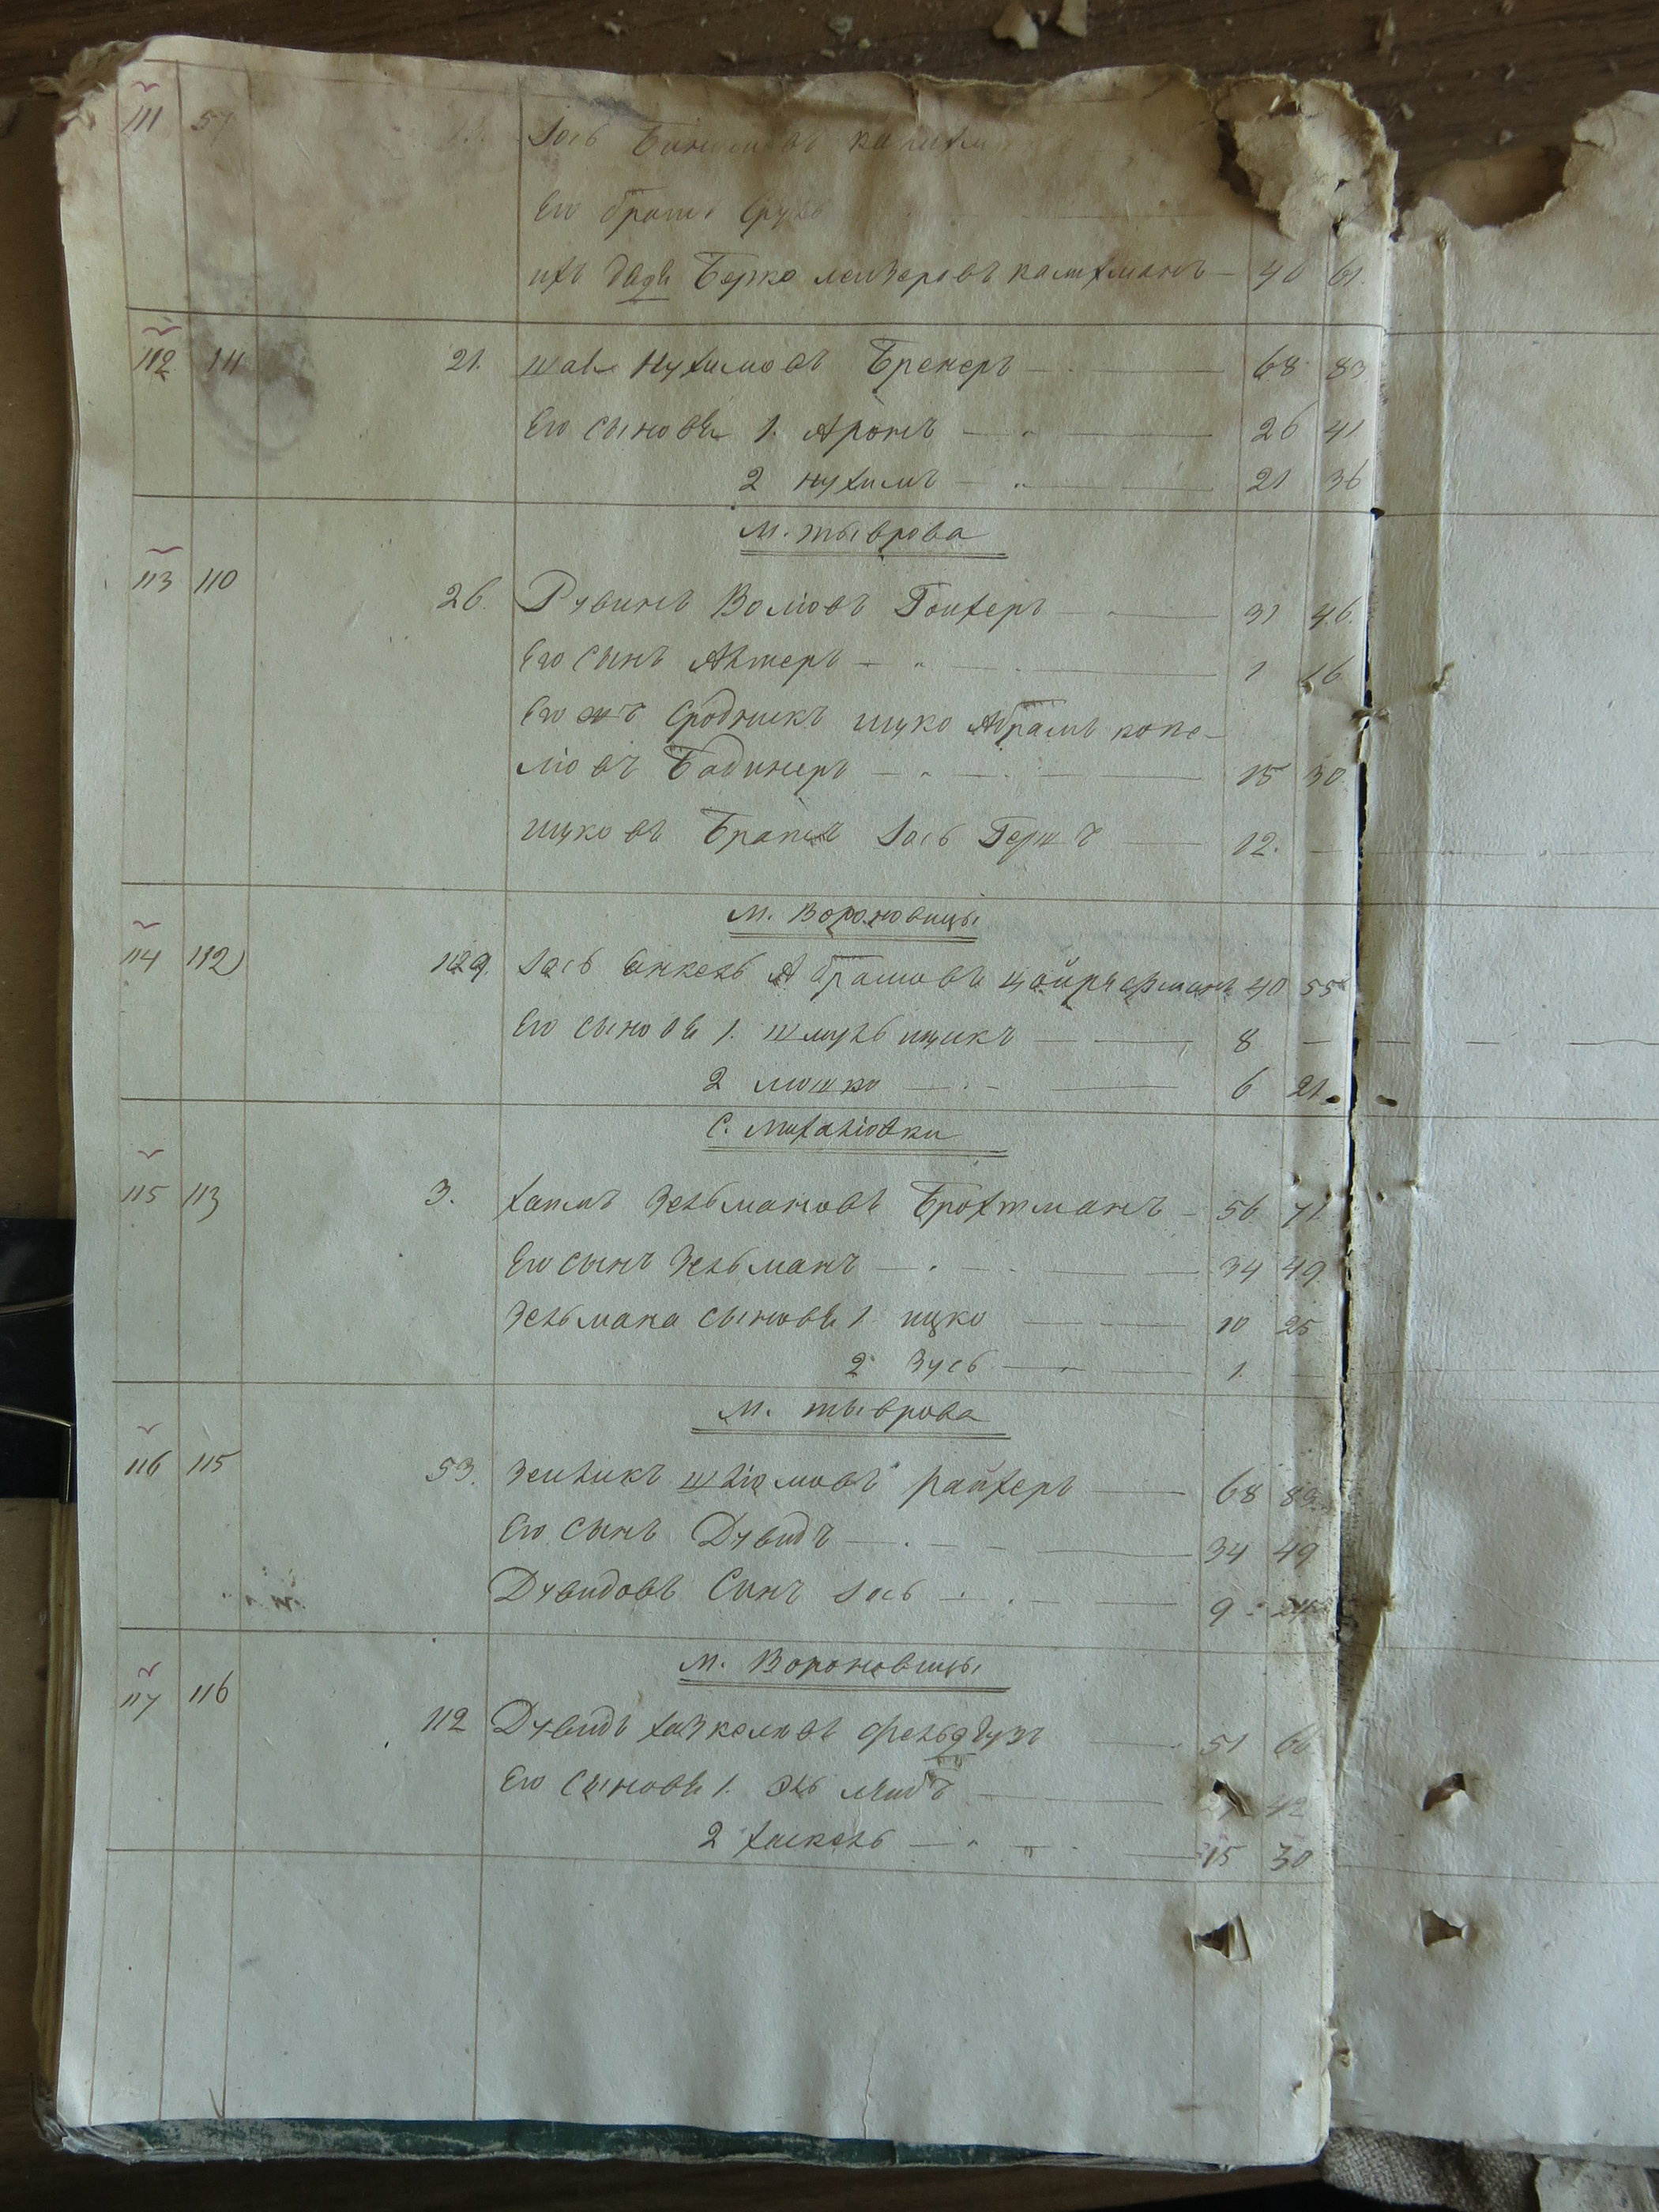 111 57 Іось
Его братъ Срулъ
ихъ дядя Берко Лейзеровъ Калихманъ — 46 61.
112 111 21. Шая Нухимовъ Бренеръ — 68 83
Его сыновья 1. Аронъ — 26 41
2 Нухимъ — 21 36
М. Тыврова
113 110 26. Рувинъ Волiовъ Гоихеръ — 31 46.
Его сынъ Алтеръ — 1 16
Его жъ Сродникъ Ицко Абрамъ Копе-
лiовъ — 15 30.
Ицковъ Братъ Іось Герш — 12. —
М. Вороновицы
114 112 129. Іось Янкель Абрамовъ 40 55
Его сыновья 1. Шмуль Ицикъ — 8 —
2 Мошко — 6 21.
С. Михалiовки
115 113 3. Хаимъ Зельмановъ Брохтманъ — 56 71
Его сынъ Зельманъ — 34 49.
Зельмана сыновья 1 Ицко — 10 25
2 Зусь — 1. —
М. Тыврова
116 115 53. Зейликъ Шлiомовъ Райхеръ — 68 83.
Его сынъ Дувидъ — 34 49
Дувидовъ Сынъ Іось — 9 24
М. Вороновицы
117 116 112 Дувидъ Хаскелiовъ — 51 66
Его сыновья 1. — 27 42
2 Хаскель — 15 30